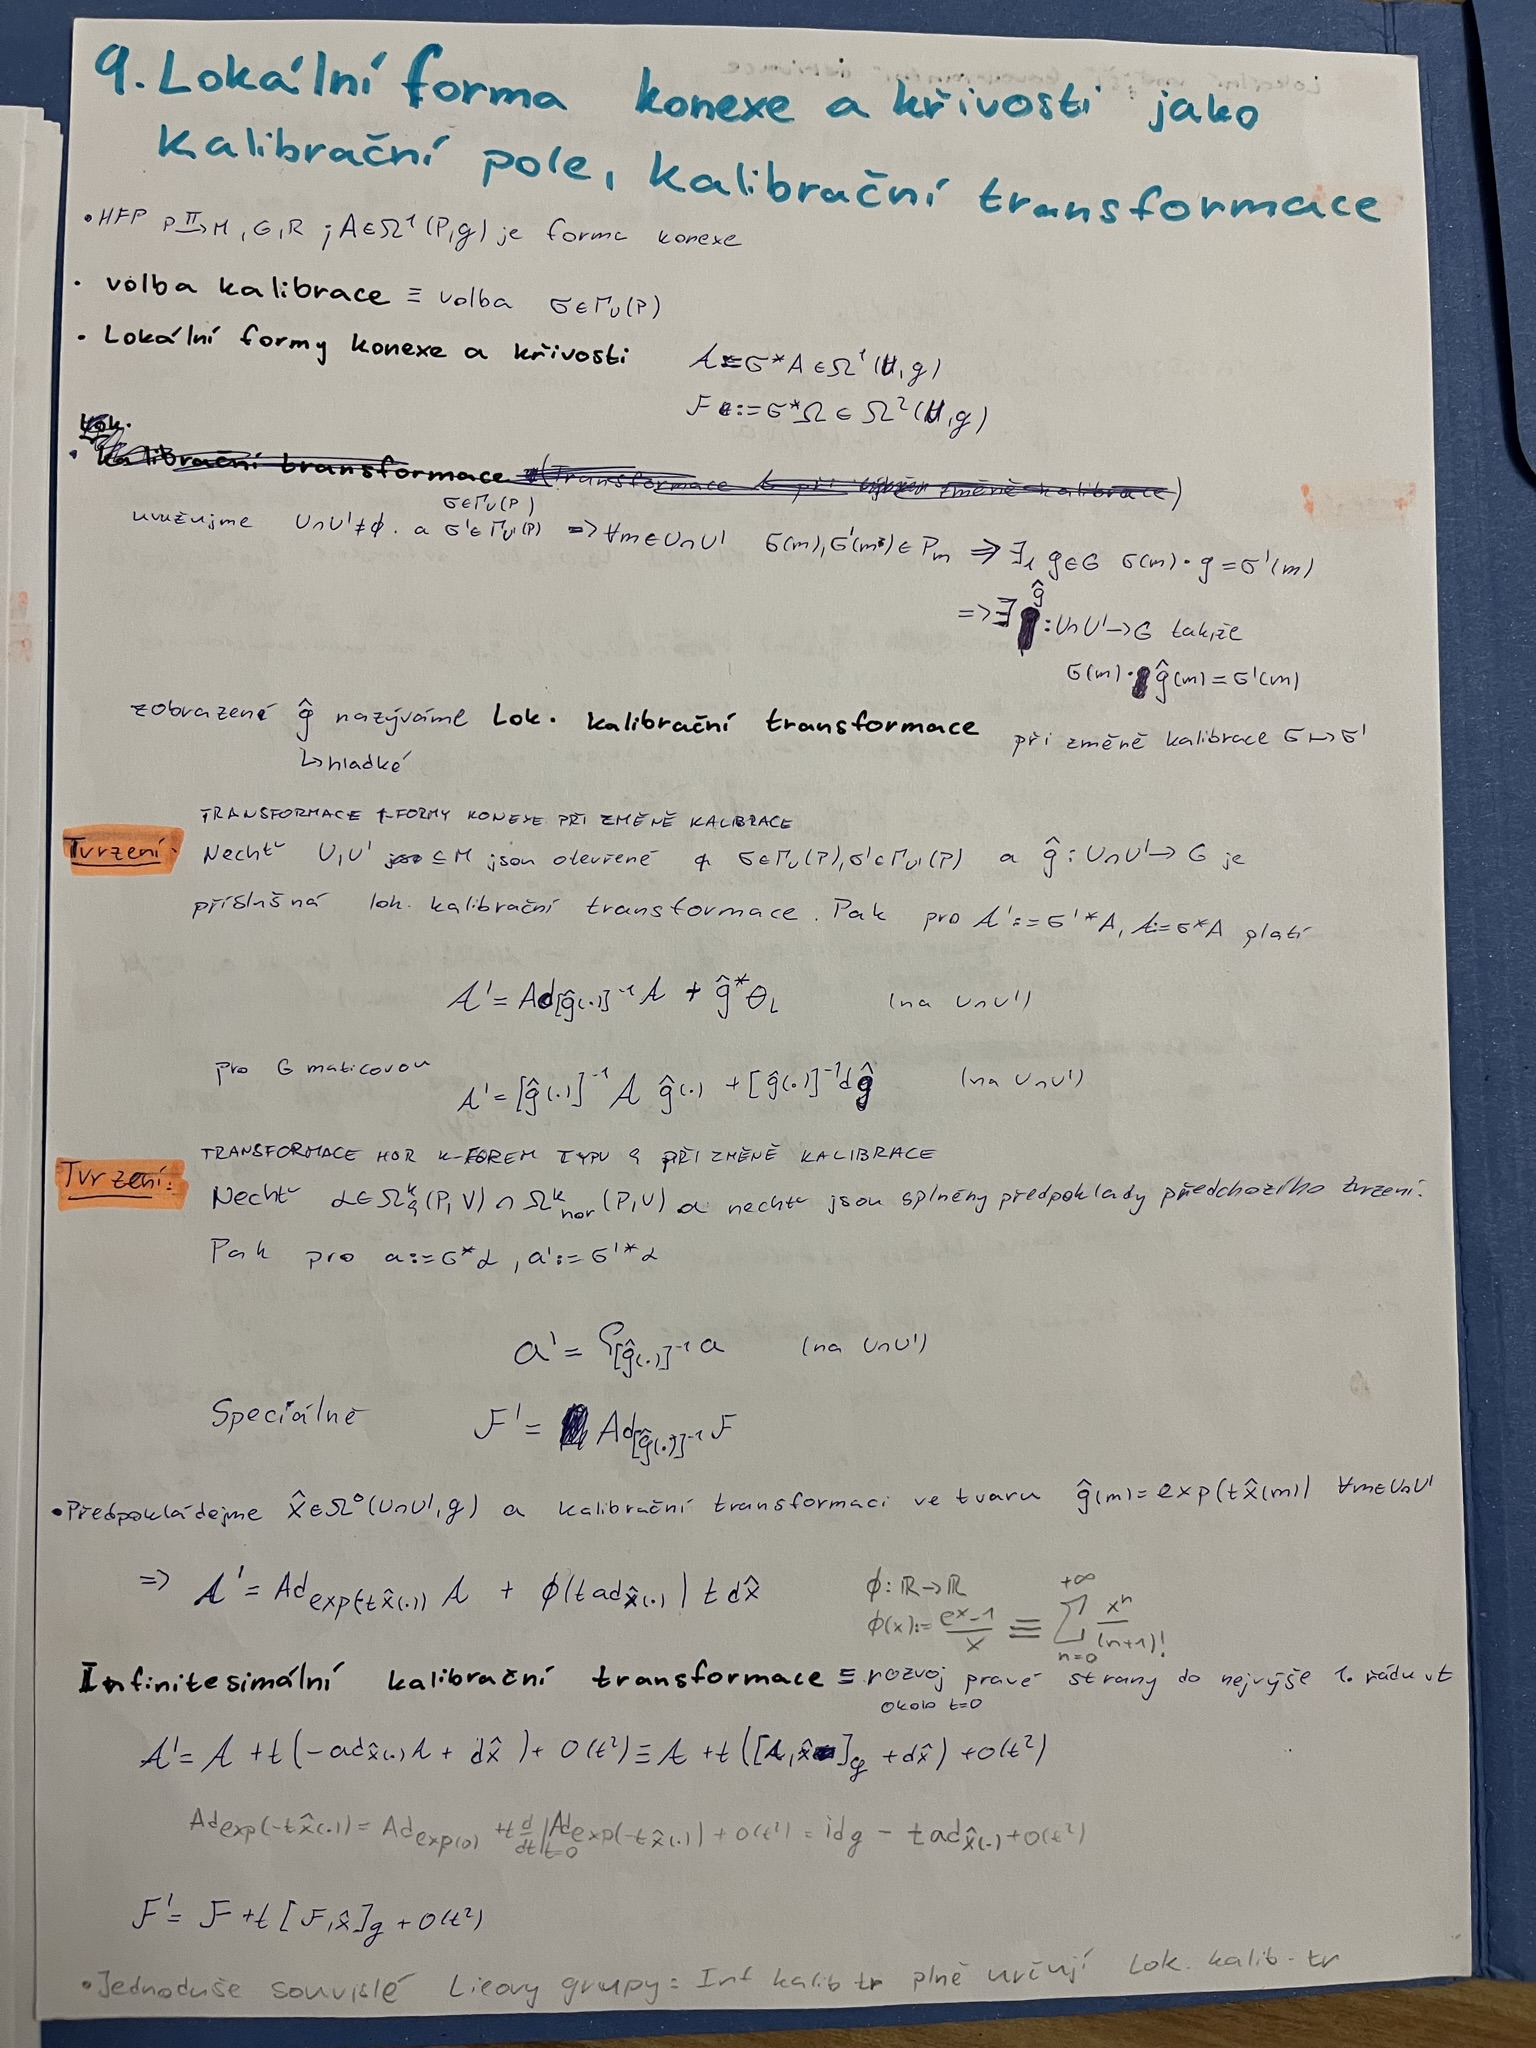 9. Lokální forma konexe a křivosti jako
Kalibrační pole, kalibrační transformace
• HFP P →^π M, G, R ; A ∈ Ω¹(P, g) je forma konexe
• volba kalibrace ≡ volba σ ∈ Γ_U(P)
• Lokální formy konexe a křivosti 𝒜 ≡ σ*A ∈ Ω¹(U, g)
ℱ := σ*Ω ∈ Ω²(U, g)
Lok.
• kalibrační transformace (Transformace při změně kalibrace)
uvažujme U∩U' ≠ ∅. a σ ∈ Γ_U(P) σ' ∈ Γ_U'(P) => ∀m ∈ U∩U' σ(m), σ'(m) ∈ P_m => ∃₁ g ∈ G σ(m)·g = σ'(m)
=> ∃ ĝ : U∩U' → G takže
σ(m)·ĝ(m) = σ'(m)
zobrazené ĝ nazýváme Lok. kalibrační transformace při změně kalibrace σ ↦ σ'
↳ hladké
TRANSFORMACE 1-FORMY KONEXE PŘI ZMĚNĚ KALIBRACE
Tvrzení: Nechť U, U' ⊆ M jsou otevřené a σ ∈ Γ_U(P), σ' ∈ Γ_U'(P) a ĝ : U∩U' → G je
příslušná lok. kalibrační transformace. Pak pro 𝒜' := σ'*A, 𝒜 := σ*A platí
𝒜' = Ad_{[ĝ(.)]⁻¹} 𝒜 + ĝ*θ_L (na U∩U')
pro G maticovou
𝒜' = [ĝ(.)]⁻¹ 𝒜 ĝ(.) + [ĝ(.)]⁻¹ dĝ (na U∩U')
TRANSFORMACE HOR K-FOREM TYPU ϱ PŘI ZMĚNĚ KALIBRACE
Tvrzení: Nechť α ∈ Ω^k_ϱ(P, V) ∩ Ω^k_hor(P, V) a nechť jsou splněny předpoklady předchozího tvrzení.
Pak pro a := σ*α, a' := σ'*α
a' = ϱ_{[ĝ(.)]⁻¹} a (na U∩U')
Speciálně ℱ' = Ad_{[ĝ(.)]⁻¹} ℱ
• Předpokládejme x̂ ∈ Ω⁰(U∩U', g) a kalibrační transformaci ve tvaru ĝ(m) = exp(t x̂(m)) ∀m ∈ U∩U'
=> 𝒜' = Ad_{exp(-t x̂(.))} 𝒜 + ϕ(t ad_{x̂(.)}) t dx̂
ϕ : ℝ → ℝ
ϕ(x) := (e^x - 1)/x ≡ Σ_{n=0}^{+∞} x^n/(n+1)!
Infinitesimální kalibrační transformace ≡ rozvoj pravé strany do nejvýše 1. řádu v t
okolo t=0
𝒜' = 𝒜 + t(-ad_{x̂(.)} 𝒜 + dx̂) + O(t²) ≡ 𝒜 + t([𝒜, x̂]_g + dx̂) + O(t²)
Ad_{exp(-t x̂(.))} = Ad_{exp(0)} + t d/dt|_{t=0} Ad_{exp(-t x̂(.))} + O(t²) = id_g - t ad_{x̂(.)} + O(t²)
ℱ' = ℱ + t [ℱ, x̂]_g + O(t²)
• Jednoduše souvislé Lieovy grupy : Inf kalib tr plně určují Lok. kalib-tr